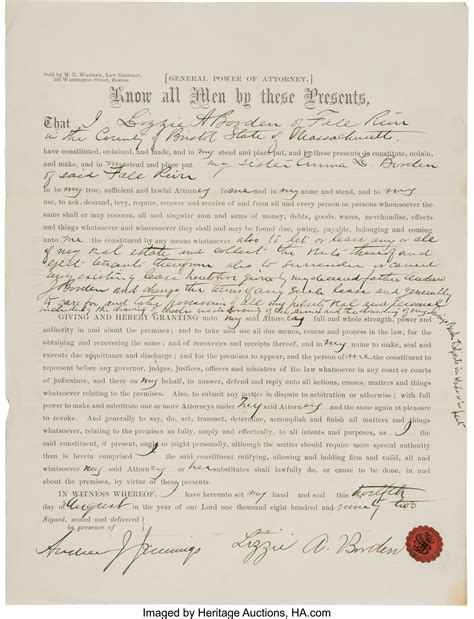 Sold by M. R. Warren, Law Stationer,
Washington Street, Boston.
[GENERAL POWER OF ATTORNEY.]
Know all Men by these Presents,
That I Lizzie A Borden of Fall River
in the County of Bristol State of Massachusetts
have constituted, ordained, and made, and in my stead and place put, and by these presents do constitute, ordain,
and make, and in my stead and place put my sister Emma L. Borden
of said Fall River
to be my true, sufficient and lawful Attorney for me and in my name and stead, and to my
use, to ask, demand, levy, require, recover and receive of and from all and every person or persons whomsoever the
same shall or may concern, all and singular sum and sums of money, debts, goods, wares, merchandise, effects
and things whatsoever and wheresoever they shall and may be found due, owing, payable, belonging and coming
unto me the constituent by any means whatsoever also to let or lease any or all
of my real estate and collect the rents therefor and
eject tenants also to
any existing lease by my deceased father Andrew
J. Borden and change the terms of any such lease and generally
to care for and take possession of all my property real and personal
including the drawing of checks
GIVING AND HEREBY GRANTING unto my said Attorney full and whole strength, power and
authority in and about the premises; and to take and use all due means, course and process in the law, for the
obtaining and recovering the same; and of recoveries and receipts thereof, and in my name to make, seal and
execute due acquittance and discharge; and for the premises to appear, and the person of me the constituent to
represent before any governor, judges, justices, officers and ministers of the law whatsoever in any court or courts
of judicature, and there on my behalf, to answer, defend and reply unto all actions, causes, matters and things
whatsoever relating to the premises. Also, to submit any matter in dispute to arbitration or otherwise; with full
power to make and substitute one or more Attorneys under her said Attorney and the same again at pleasure
to revoke. And generally to say, do, act, transact, determine, accomplish and finish all matters and things
whatsoever relating to the premises as fully, amply and effectually, to all intents and purposes, as I the
said constituent, if present, ought or might personally, although the matter should require more special authority
than is herein comprised I the said constituent ratifying, allowing and holding firm and valid, all and
whatsoever my said Attorney or her substitutes shall lawfully do, or cause to be done, in and
about the premises, by virtue of these presents.
IN WITNESS WHEREOF, I have hereunto set my hand and seal this twelfth
day of August in the year of our Lord one thousand eight hundred and ninety two
Signed, sealed and delivered
in presence of
Andrew J Jennings
Lizzie A. Borden
Imaged by Heritage Auctions, HA.com